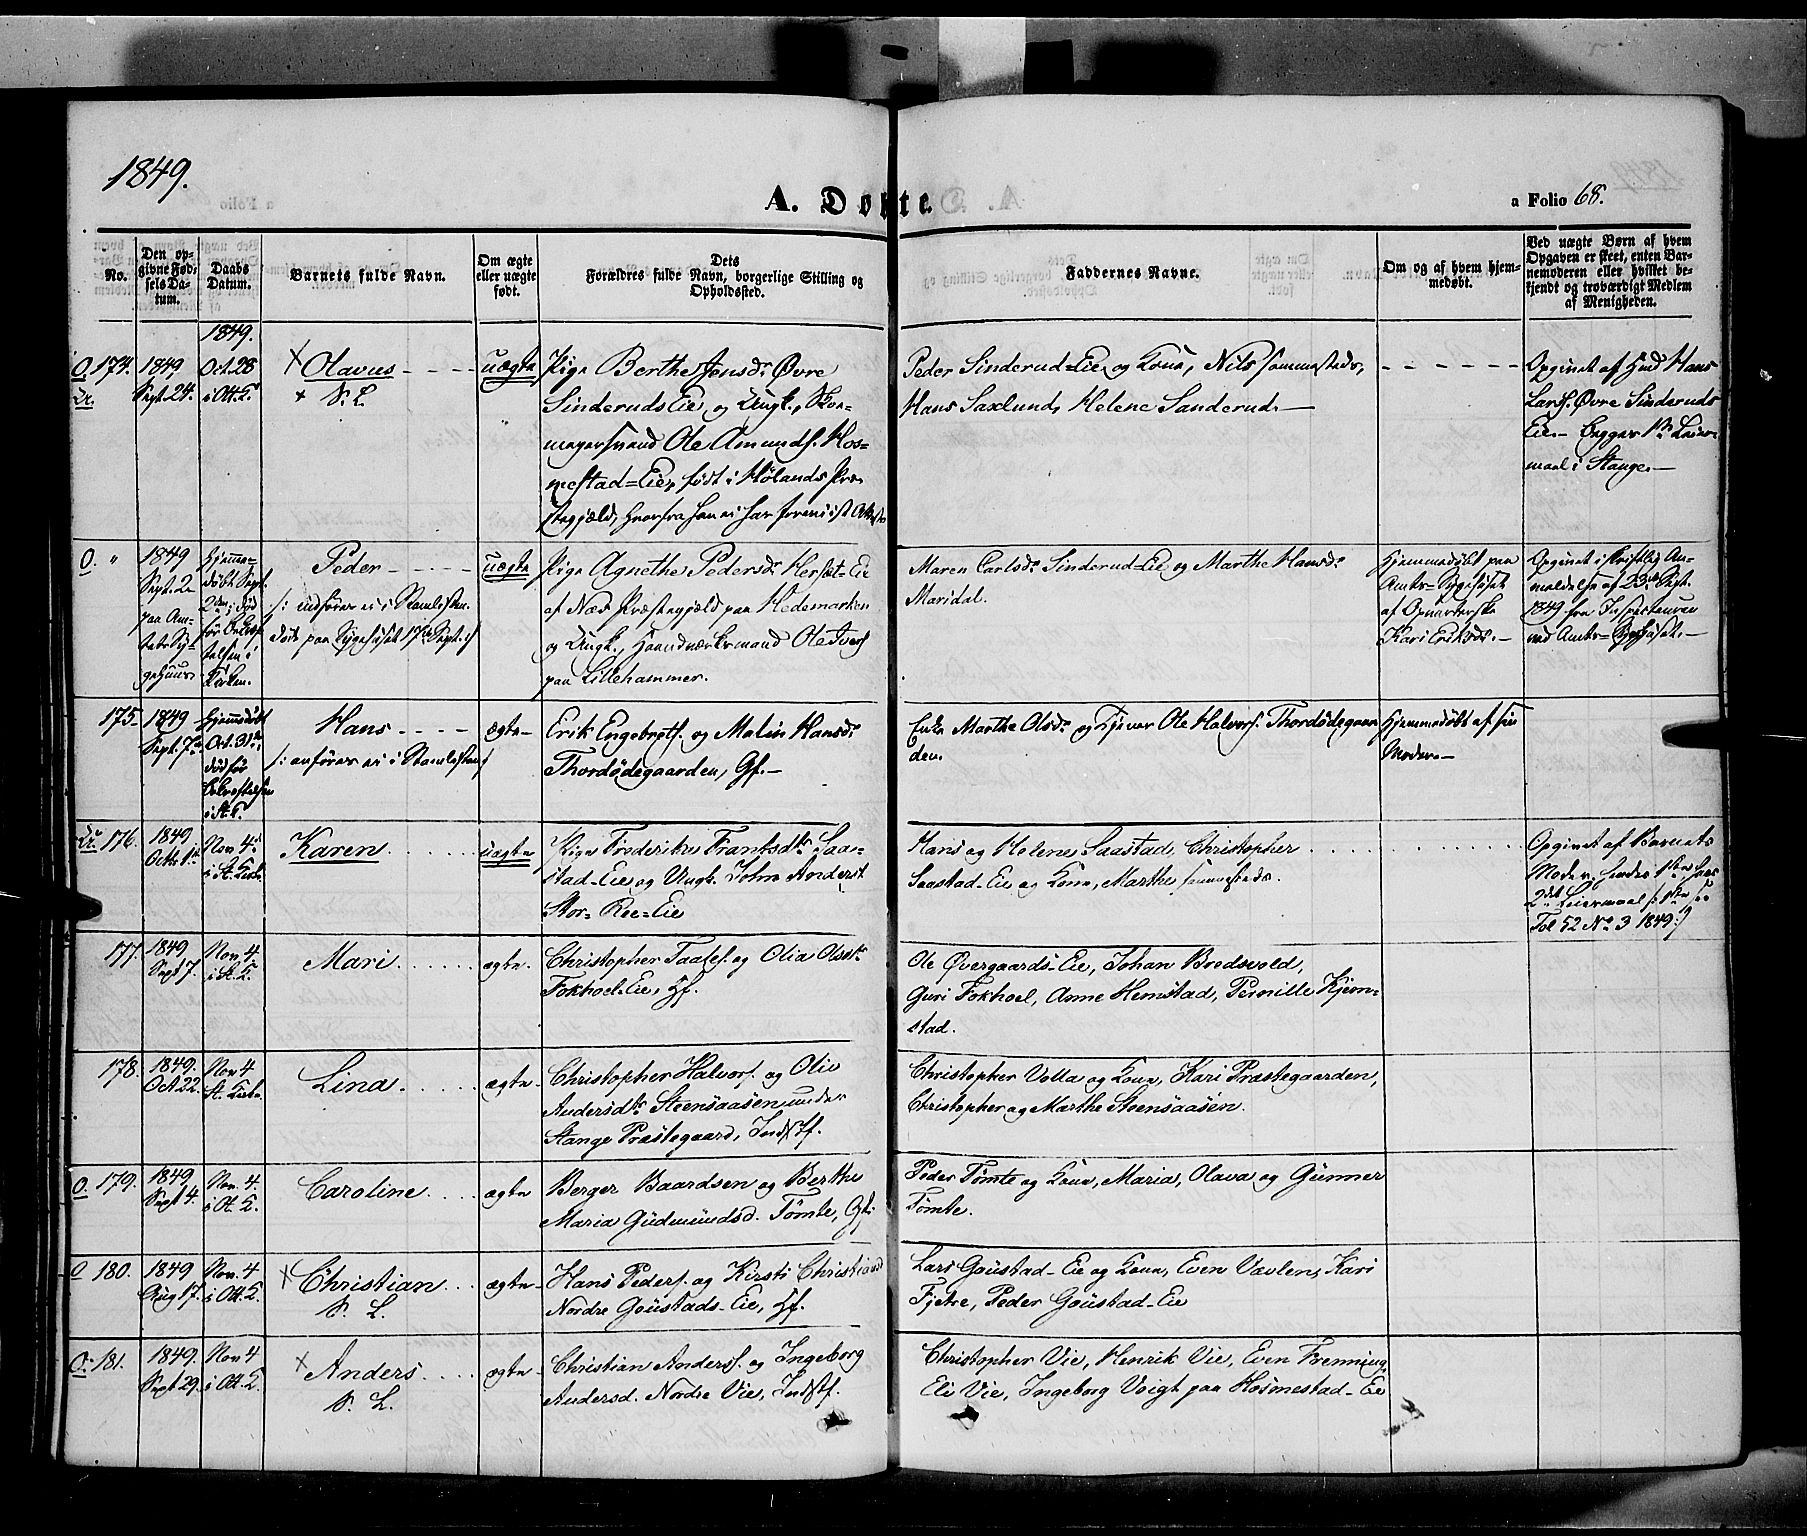 1849.
A. Døbte.
a Folio 68.
No.
Den opgivne Fødselsdatum.
Daabs Datum.
Barnets fulde Navn.
Om ægte eller uægte født.
Dets Forældres fulde Navn, borgerlige Stilling og Opholdssted.
Faddernes Navne.
Om og af hvem hjemmedøbt.
Ved uægte Børn af hvem Opgaven er skeet, enten Barnemoderen eller hvilket bekjendt og troværdigt Medlem af Menigheden.
1849.
O. 174.
1849
Sept. 24.
Oct. 28
i Ott. K.
Olavus
uægte
Pige Berthe Jensd. Øvre
Sinderuds Eie og Ungk.
Ole Amunds. Hos-
mestad=Eie, født i Hølands Præ-
stegjæld, hvorfra han ei har
Peder Sinderud=Eie og Kone, Nils sammesteds,
Hans Saxlund, Helene Sanderud.
Opgivet af Huusmd. Hans
Lars. Øvre Sinderuds
Eie. Begges 1ste Leier-
maal i Stange.
O. "
1849
Sept. 2
paa Am-
tets Sy-
gehuus
Hjemme-
døbt Sept.
2den; død
før
i
Kirken.
Peder
/: indføres ei i Stamlisten.
død paa Sygehuset 17de Sept. :/
uægte
Pige Agnethe Pedersd. Hersæt-Eie
af Næs Præstegjæld paa Hedemarken
og Ungk., Haandværksmand Ole Ivers.
paa Lillehammer.
Maren Carlsd. Sinderud=Eie og Marthe Hansd.
Maridal.
Hjemmedøbt paa
Amts-Sygehuset
af Opvarterske
Kari Eriksd.
Opgivet i skriftlig An-
meldelse af 23de Sept.
1849 fra Inspecteuren
ved Amts-Sygehuset.
175.
1849
Sept. 7de
Hjemmedøbt
Oct. 31te;
død før
i St. K.
Hans
/: anføres ei i Stamlisten :/
ægte
Erik Engebrets. og Malin Hansd.
Thordødegaarden, Gf.
Enke Marthe Olsd. og Tjener Ole Halvors. Thordødegaar-
den.
Hjemmedøbt af sin
Moder.
176.
1849
Octb. 1st
Nov 4
i St. Kirk.
Karen
uægte
Pige Frederikke Frantsdtr. Saa-
stad-Eie og Ungk. John Anders.
Stor-Ree=Eie
Hans og Helene Saastad, Christopher
Saastad-Eie og Kone, Marthe sammesteds.
Opgivet af Barnets
Moder. hendes 1ste, hans
2det Leiermaal
Fol 52 No 3 1849
177.
1849
Sept 7.
Nov. 4.
i St. K.
Mari
ægte
Christopher Taales. og Olia Olsdtr.
Fokhoel-Eie, Hf.
Ole Øvergaards-Eie, Johan Bredsvold,
Guri Fokhoel, Anne Hemstad, Pernille Kjem-
stad.
178.
1849.
Oct 22.
Nov 4
St. Kirk.
Lina
ægte
Christopher Halvors. og Olie
Andersdtr. Steensaasen under
Stange Præstegaard, Indstf.
Christopher Volla og Kone, Kari Præstegaarden,
Christopher og Marthe Steensaasen.
O 179.
1849
Sept 4.
Nov. 4.
i Ot. K.
Caroline
ægte
Berger Baardsen og Berthe
Maria Gudmundsd. Tømte, Gf.
Peder Tømte og Kone, Maria, Olava og Gunner
Tømte.
O 180.
1849
Aug 17.
Nov. 4
i Ott. K.
Christian
S. L.
ægte
Hans Peders. og Kirsti Christiansd.
Nordre Goustads-Eie, Hf.
Lars Goustad-Eie og Kone, Even Vævlen, Kari
Fjetre, Peder Goustad-Eie
O 181.
1849.
Sept 29.
Nov 4
i Ott. K.
Anders
S. L.
ægte
Christian Anders. og Ingeborg
Andersd. Nordre Vie, Indstf.
Christopher Vie, Henrik Vie, Even Frenning,
Eli Vie, Ingeborg Voigt paa Hosmestad-Eie